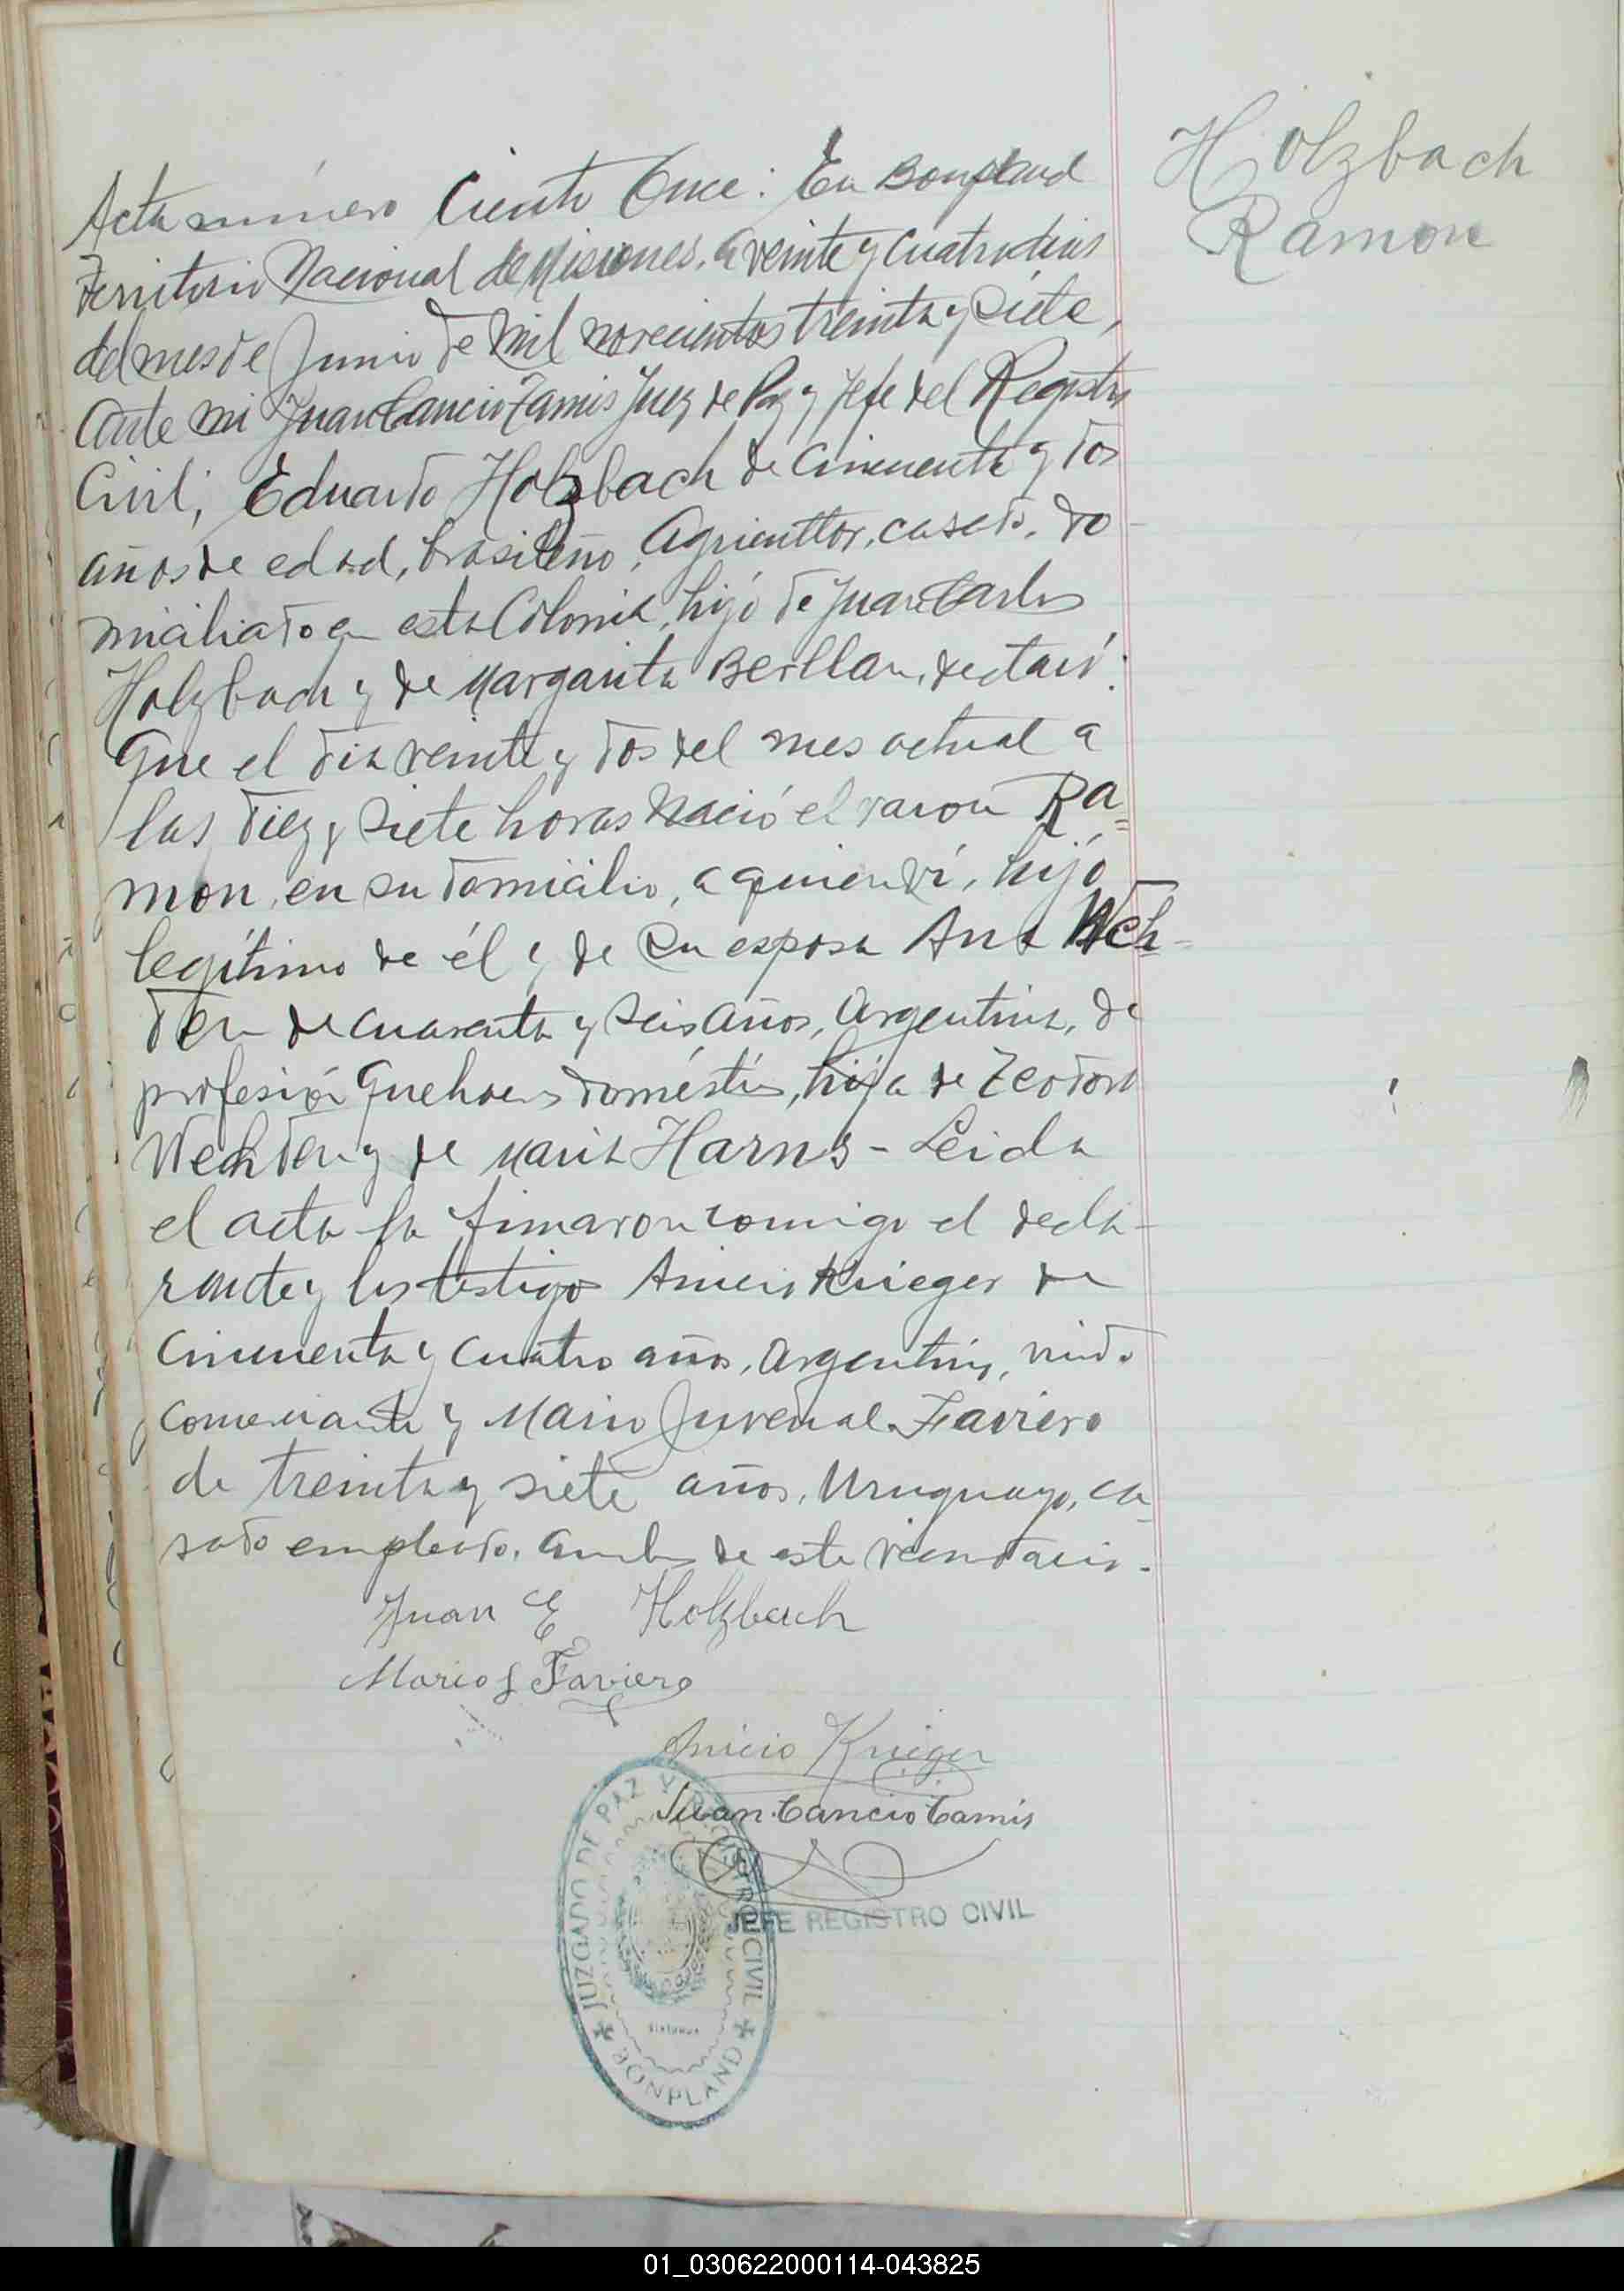 Holzbach
Ramon
Acta número Ciento Once: En Bonpland
Territorio Nacional de Misiones, a veinte y cuatro dias
del mes de Junio de mil novecientos treinta y siete,
ante mi Juan Cancio Tamis Juez de Paz y Jefe del Registro
Civil; Eduardo Holzbach de cincuenta y dos
años de edad, brasileño, agricultor, casado, do
miciliado en esta Colonia, hijo de Juan Carlos
Holzbach y de Margarita Berllan, declaró:
Que el dia veinte y dos del mes actual a
las diez y siete horas nació el varon Ra=
mon, en su domicilio, a quien ví, hijo
legítimo de él y de su esposa Ana Weh-
den de cuarenta y seis años, argentina, de
profesión quehaceres domésticos, hija de Teodoro
y de Maria Harns - Leida
el acta la firmaron conmigo el decla-
rante y los testigos Anicio Krieger de
cincuenta y cuatro años, argentino, viudo
comerciante y Mario Juvenal Faviero
de treinta y siete años, Uruguayo, ca
sado empleado, ambos de este vecindario.
Juan E Holzbach
Mario J Faviero
Anicio Krieger
Juan Cancio Tamis
JEFE REGISTRO CIVIL
JUZGADO DE PAZ Y REGISTRO CIVIL
BONPLAND
01_030622000114-043825